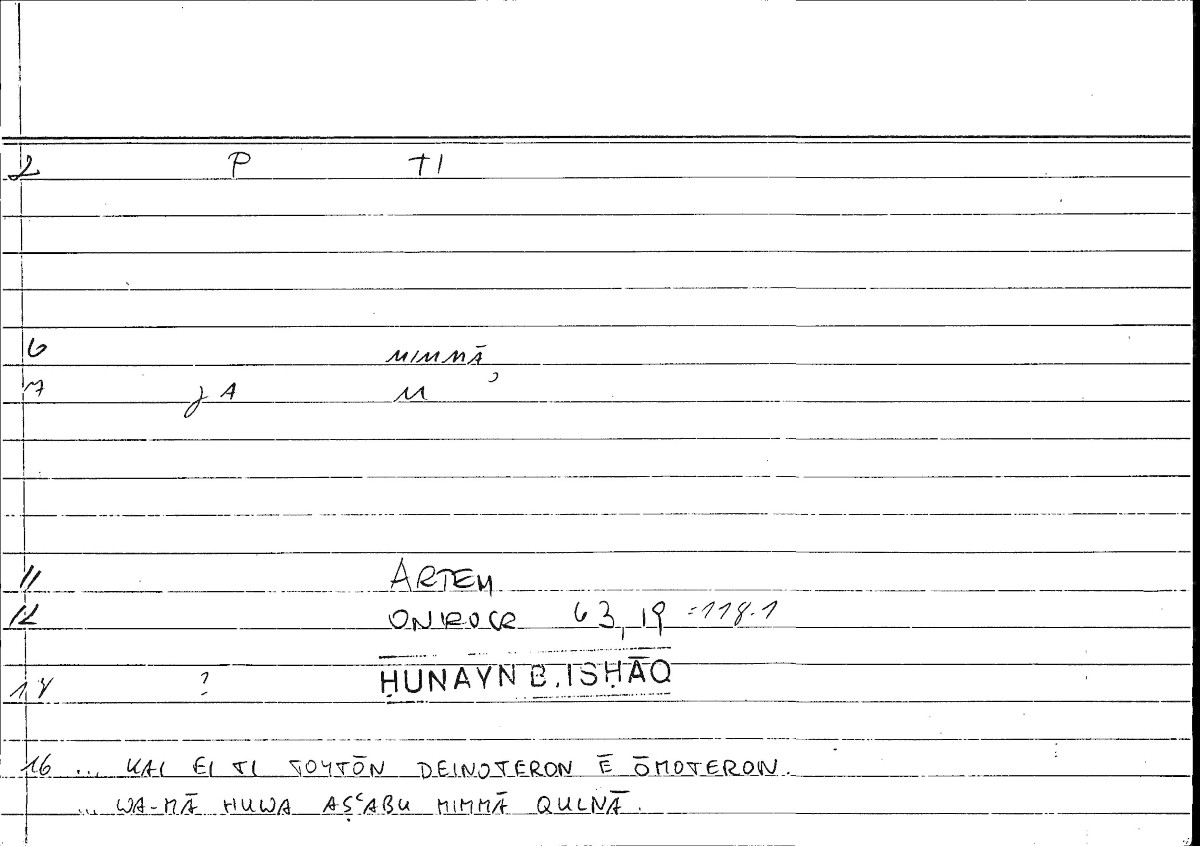 2 P TI
6 MIMMĀ,
7 JA M
11 ARTEM
12 ONIROCR 63,19 =118.1
14 ? ḤUNAYN B. ISḤĀQ
16 ... KAI EI TI TOYTŌN DEINOTERON Ē ŌMOTERON.
... WA-MĀ HUWA AṢʿABU MIMMĀ QULNĀ.